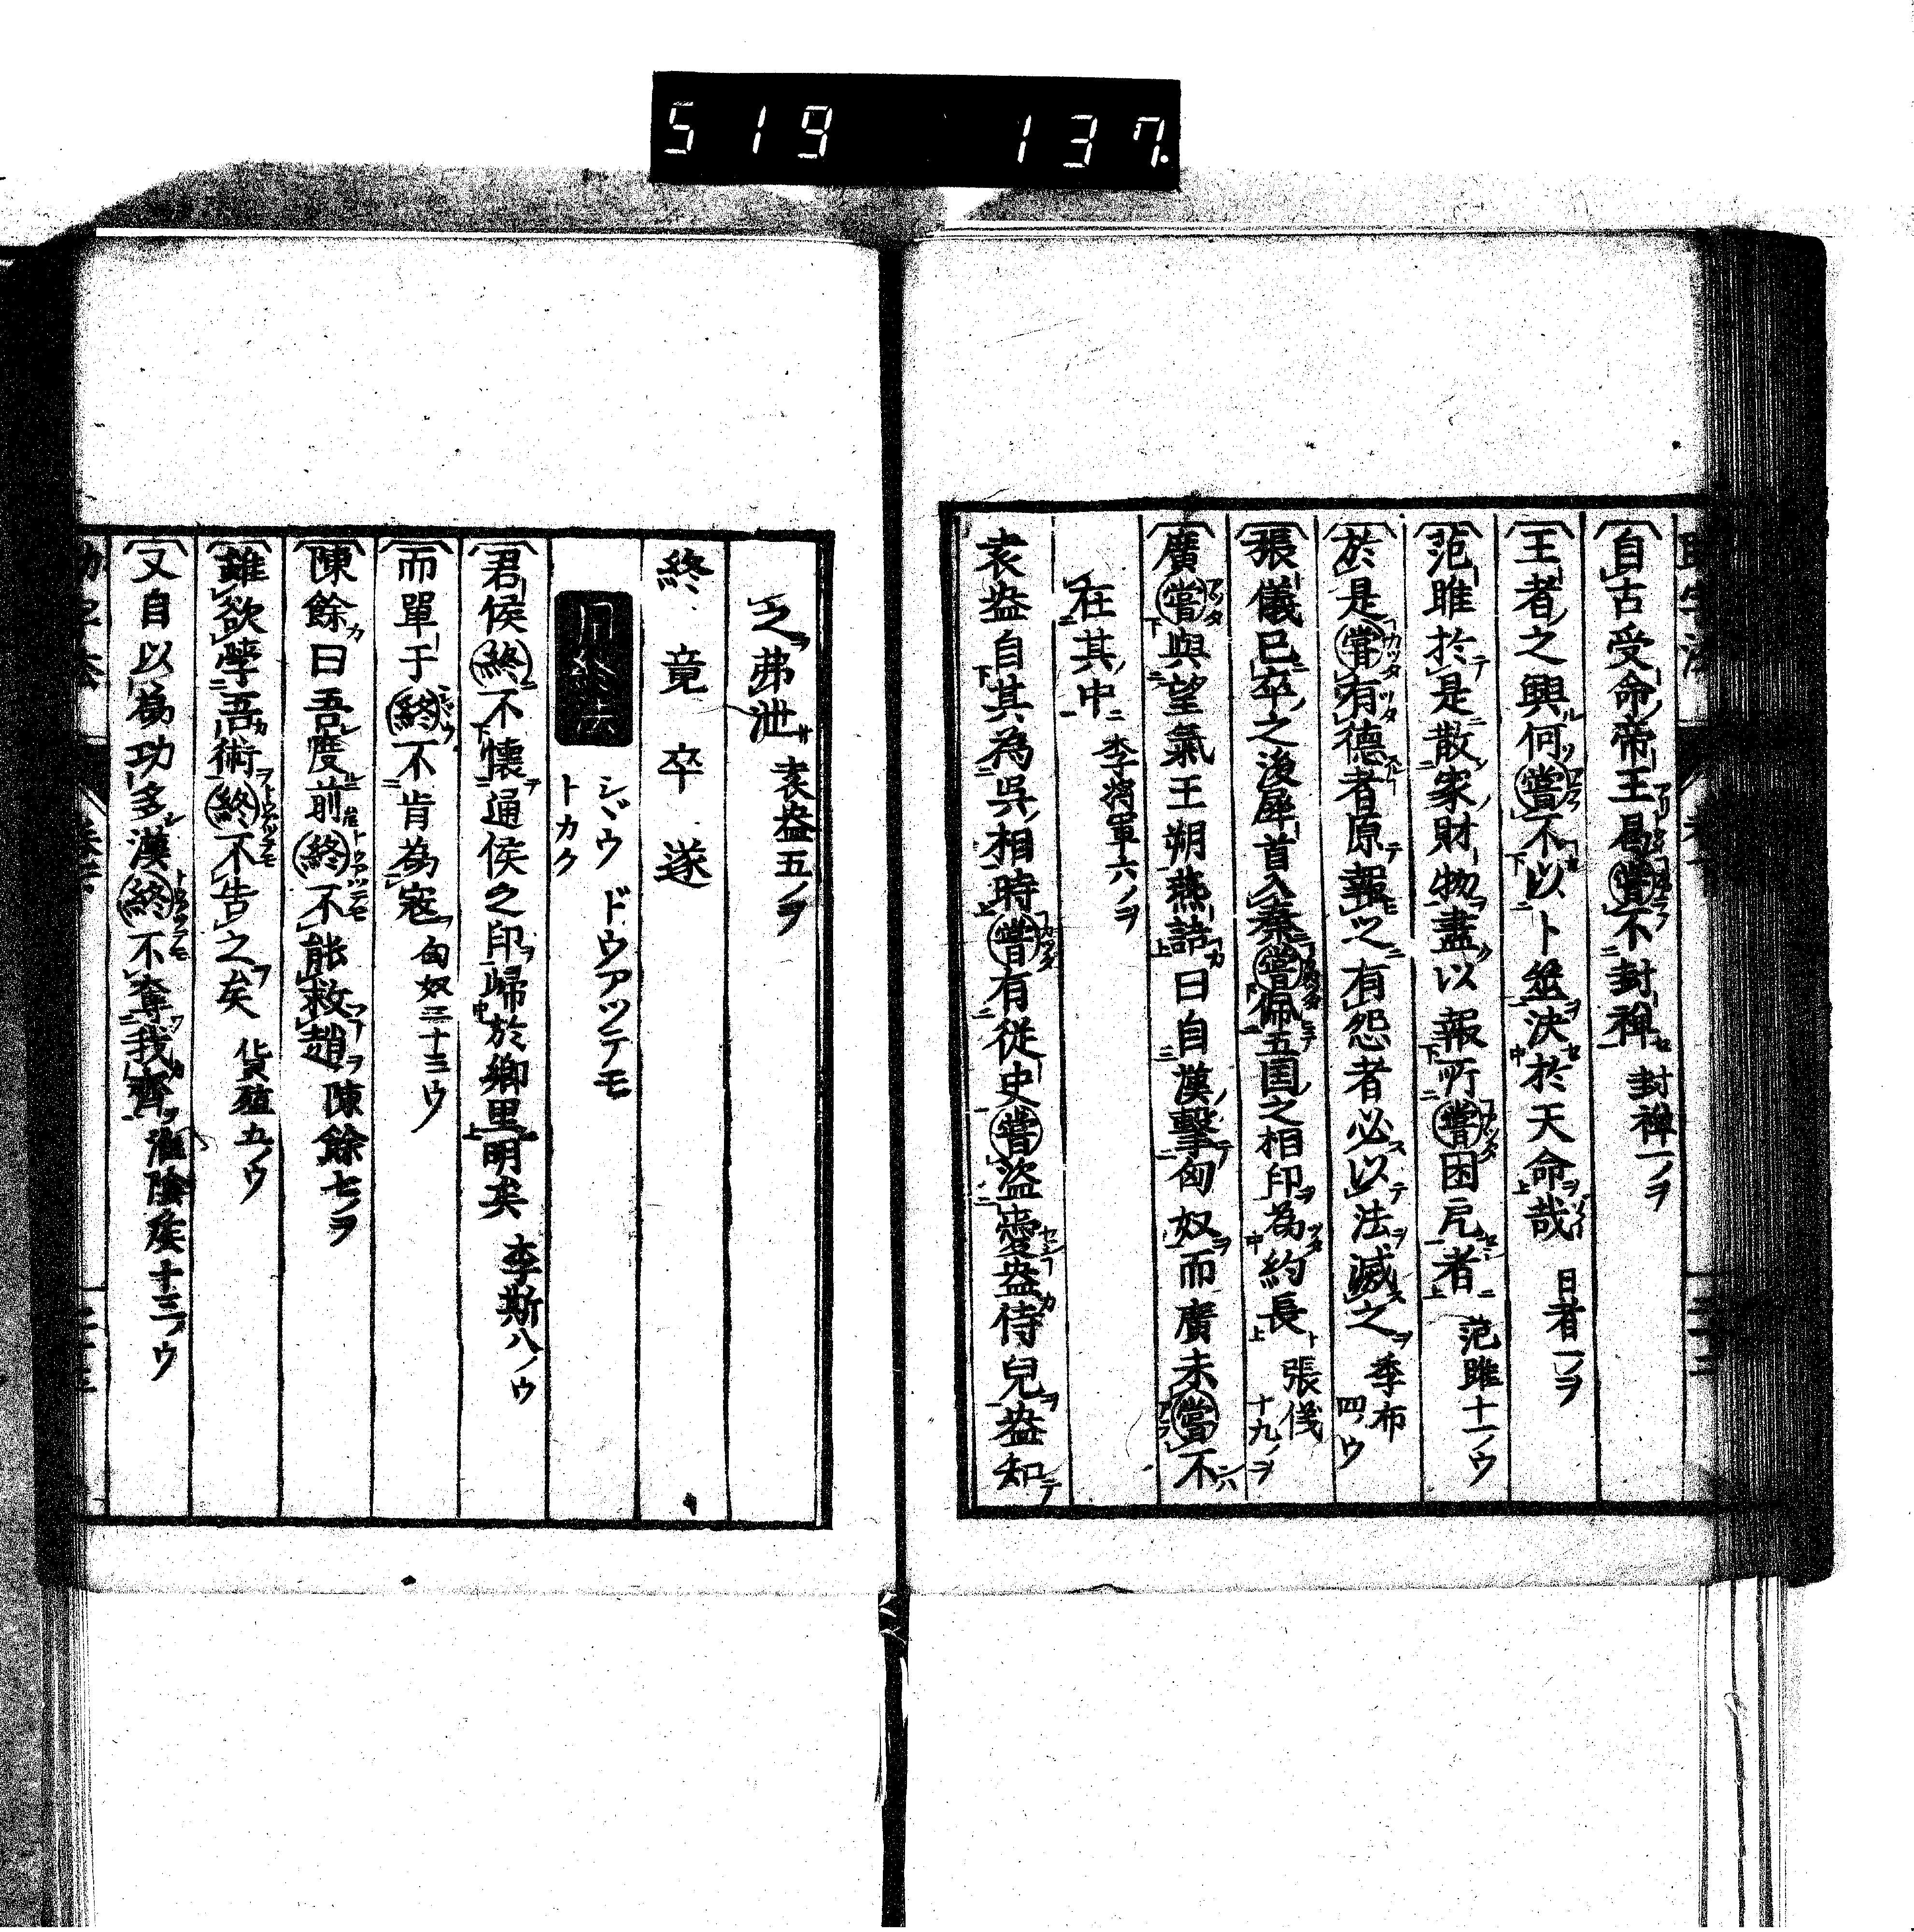 519 137.
自古受命帝王曷嘗不封禅 封禅一ノヲ
王者之興何嘗不以卜筮決於天命哉 日者一ノヲ
范雎於是散家財物盡以報所嘗困戹者 范雎十一ノウ
於是嘗有德者厚報之有怨者必以法滅之 季布四ノウ
張儀已卒之後犀首入秦嘗佩五国之相印為約長 張儀十九ノヲ
廣嘗與望氣王朔燕語曰自漢擊匈奴而廣未嘗不
在其中 李将軍六ノヲ
袁盎自其為呉相時嘗有従史嘗盜愛盎侍兒盎知
之弗泄 袁盎五ノヲ
終 竟 卒 遂
用終法 シヾウ ドウアツテモ
トカク
君侯終不懐通侯之印歸於郷里明矣 李斯八ノウ
而單于終不肯為寇 匈奴三十三ウ
陳餘曰吾度前終不能救趙 陳餘七ノヲ
雖欲學吾術終不告之矣 貨殖五ノウ
又自以為功多漢終不奪我齊 淮陰侯十三ノウ